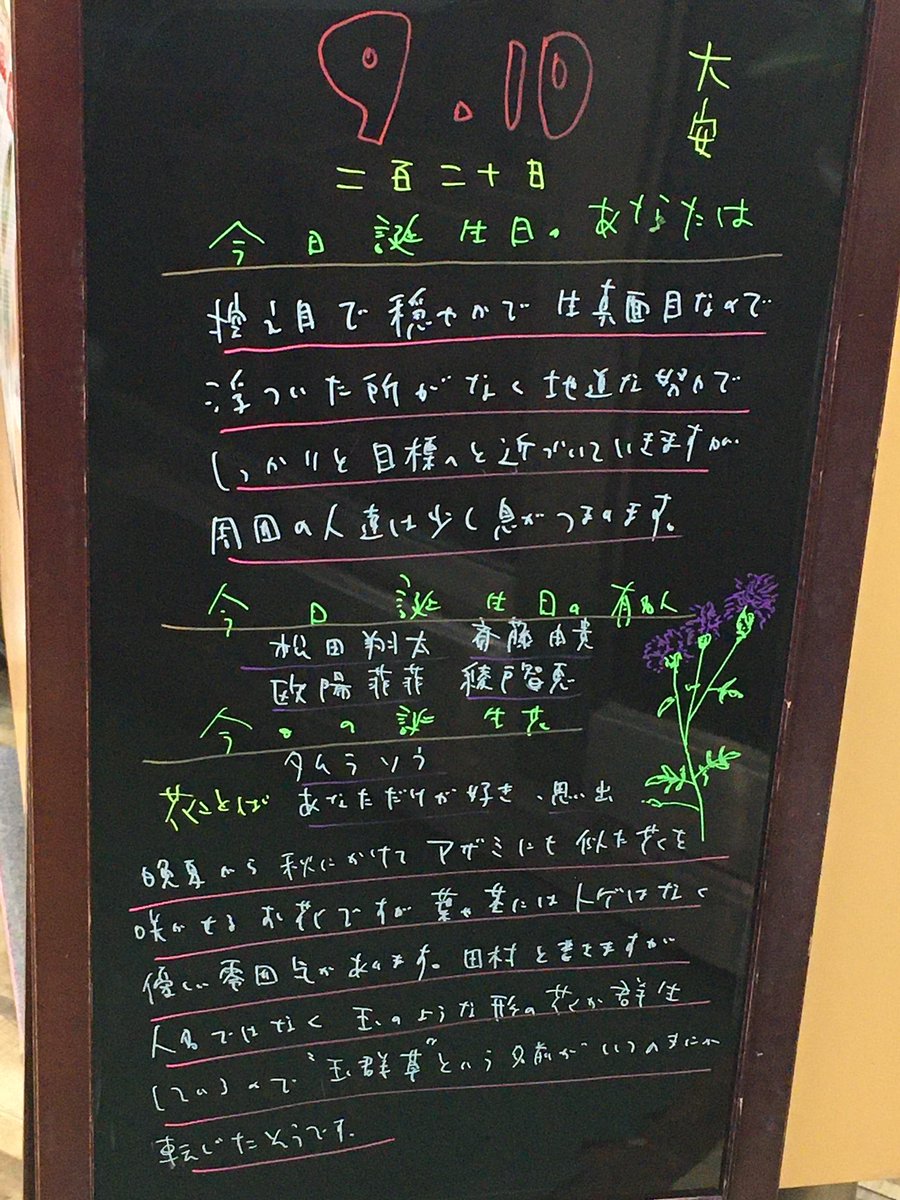 9.10
大安
二百二十日
今日誕生日のあなたは
控え目で穏やかで生真面目なので
浮ついた所がなく地道な努力で
しっかりと目標へと近づいていきますが
周囲の人達は少し息がつまります。
今日誕生日の有名人
松田翔太 斉藤由貴
欧陽菲菲 綾戸智恵
今日の誕生花
タムラソウ
花ことば あなただけが好き、思い出
晩夏から秋にかけてアザミにも似た花を
咲かせるお花ですが葉や茎にはトゲはなく
優しい雰囲気があります。田村と書きますが
人名ではなく玉のような形の花が群生
しているので"玉群草"という名前がいつのまにか
転じたそうです。